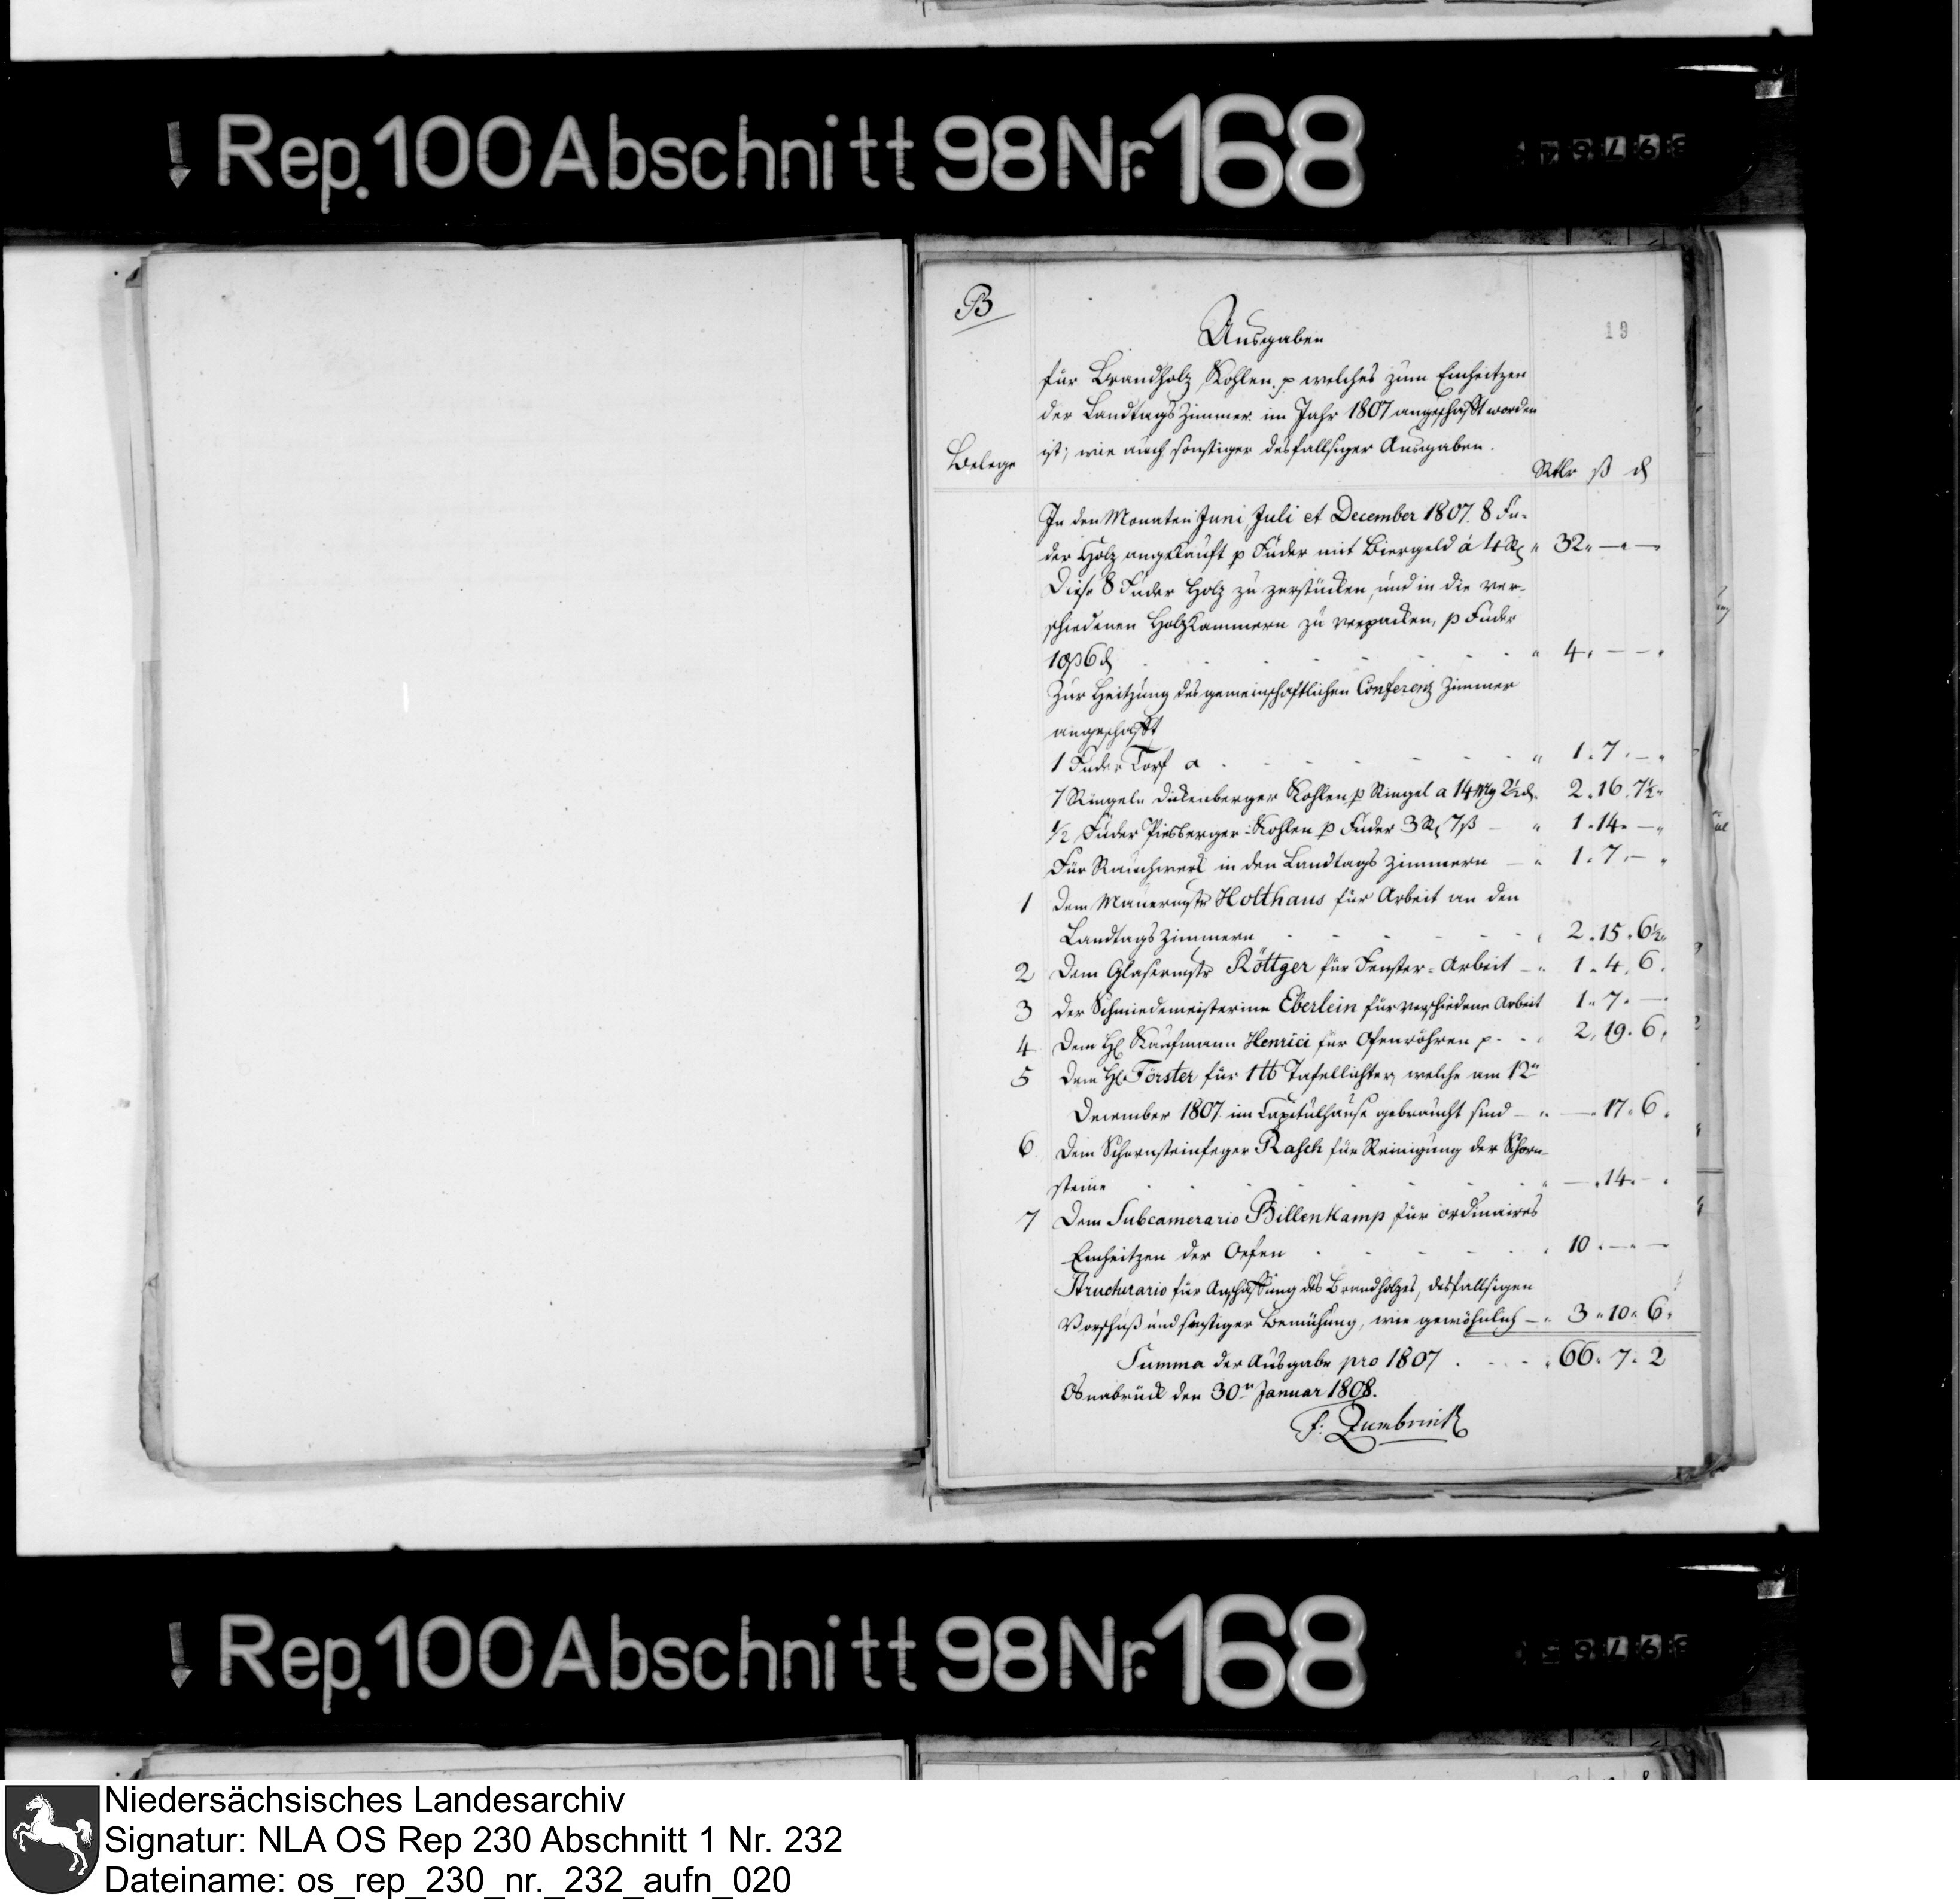 Rep. 100 Abschnitt 98 Nr. 168
B
19
Ausgaben
für Brandholz, Kohlen p welches zum Einheitzen
der Landtags Zimmer im Jahr 1807 angeschafft worden
ist; wie auch sonstiger desfallsiger Ausgaben.
Belege
Rtlr ß d
In den Monaten Juni, Juli et December 1807. 8 Fu-
der Holz angekauft p Fuder mit Biergeld á 4 R 32 " — " —
Diese 8 Fuder Holz zu zerstücken, und in die ver-
schiedenen Holzkammern zu verpacken, p Fuder
10ß 6d - - - " 4 " — —
Zur Heitzung des gemeinschaftlichen Conferenz Zimmer
angeschafft
1 Fuder Torf a - - - " 1 " 7 " —
7 Ringeln Dickenberger Kohlen p Ringel a 14 Mg 2½ d. 2 " 16 " 7½
½ Fuder Piesberger-Kohlen p Fuder 3 R 7ß — " 1 " 14 " —
Für Rauchwerk in den Landtags Zimmern — " 1 " 7 " —
1 Dem Mauermstr Holthaus für Arbeit an den
Landtags Zimmern - - - 2 " 15 " 6½
2 Dem Glasermstr Röttger für Fenster-Arbeit — " 1 " 4 " 6
3 Der Schmiedemeisterinn Eberlein für verschiedene Arbeit 1 " 7 " —
4 Dem H. Kaufmann Henrici für Ofenröhren p - - 2 " 19 " 6
5 Dem H. Förster für 1 tb Tafellichter, welche am 12n
December 1807 im Capitulhause gebraucht sind — " — " 17 " 6
6 Dem Schornsteinfeger Rasch für Reinigung der Schorn-
steine - - - — " 14 " —
7 Dem Subcamerario Billenkamp für ordinaires
Einheitzen der Oefen - - - 10 " — " —
Structurario für Anschaffung des Brandholzes, desfallsigen
Vorschuß und sonstiger Bemühung, wie gewöhnlich — " 3 " 10 " 6
Summa der Ausgabe pro 1807 . - - - " 66 " 7 " 2
Osnabrück den 30n Januar 1808.
F: Zumbrink
Rep. 100 Abschnitt 98 Nr. 168
Niedersächsisches Landesarchiv
Signatur: NLA OS Rep 230 Abschnitt 1 Nr. 232
Dateiname: os_rep_230_nr._232_aufn_020